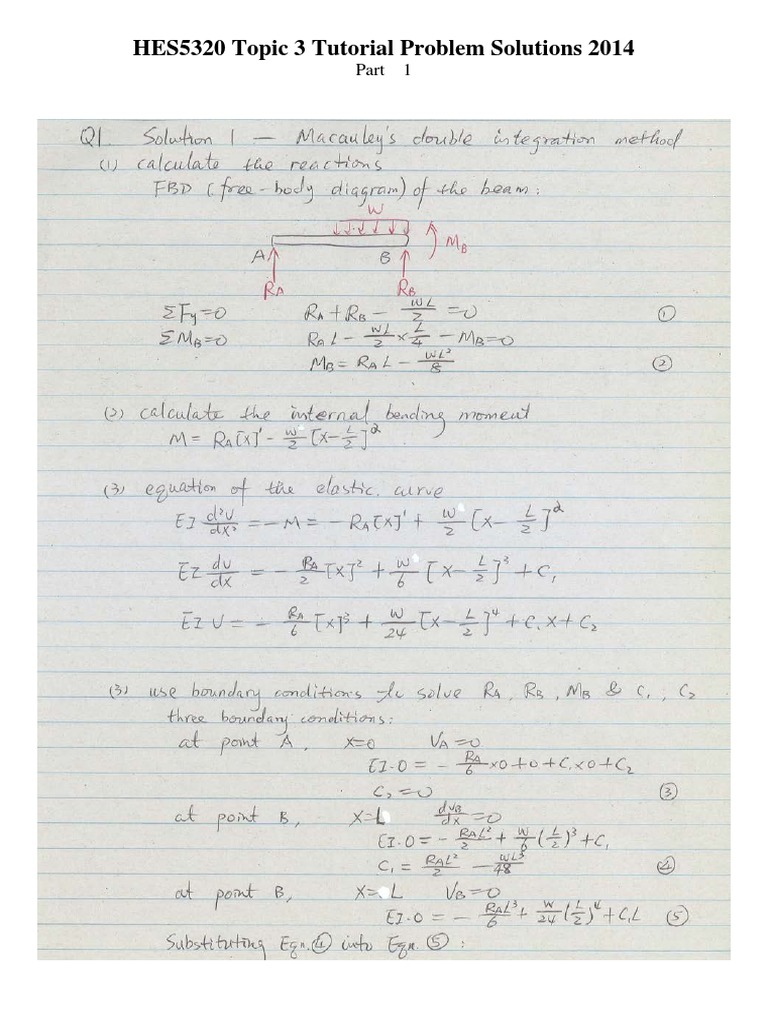 HES5320 Topic 3 Tutorial Problem Solutions 2014
Part 1
Q1. Solution 1 — Macauley's double integration method
(1) calculate the reactions
FBD (free-body diagram) of the beam:
W
A B M_B
R_A R_B
ΣFy=0 R_A + R_B - WL/2 = 0 ①
ΣM_B=0 R_A L - WL/2 × L/4 - M_B = 0
M_B = R_A L - WL²/8 ②
(2) calculate the internal bending moment
M = R_A[x]' - W/2 [x - L/2]²
(3) equation of the elastic curve
EI d²v/dx² = -M = - R_A[x]' + W/2 [x - L/2]²
EI dv/dx = - R_A/2 [x]² + W/6 [x - L/2]³ + C₁
EI v = - R_A/6 [x]³ + W/24 [x - L/2]⁴ + C₁x + C₂
(3) use boundary conditions to solve R_A, R_B, M_B & C₁, C₂
three boundary conditions:
at point A, x=0 V_A=0
EI·0 = - R_A/6 ×0+0+C₁×0+C₂
C₂=0 ③
at point B, x=L dv_B/dx=0
EI·0 = - R_A L²/2 + W/6 (L/2)³ + C₁
C₁ = R_A L²/2 - WL³/48 ④
at point B, x=L V_B=0
EI·0 = - R_A L³/6 + W/24 (L/2)⁴ + C₁L ⑤
Substituting Eqn.④ into Eqn.⑤ :